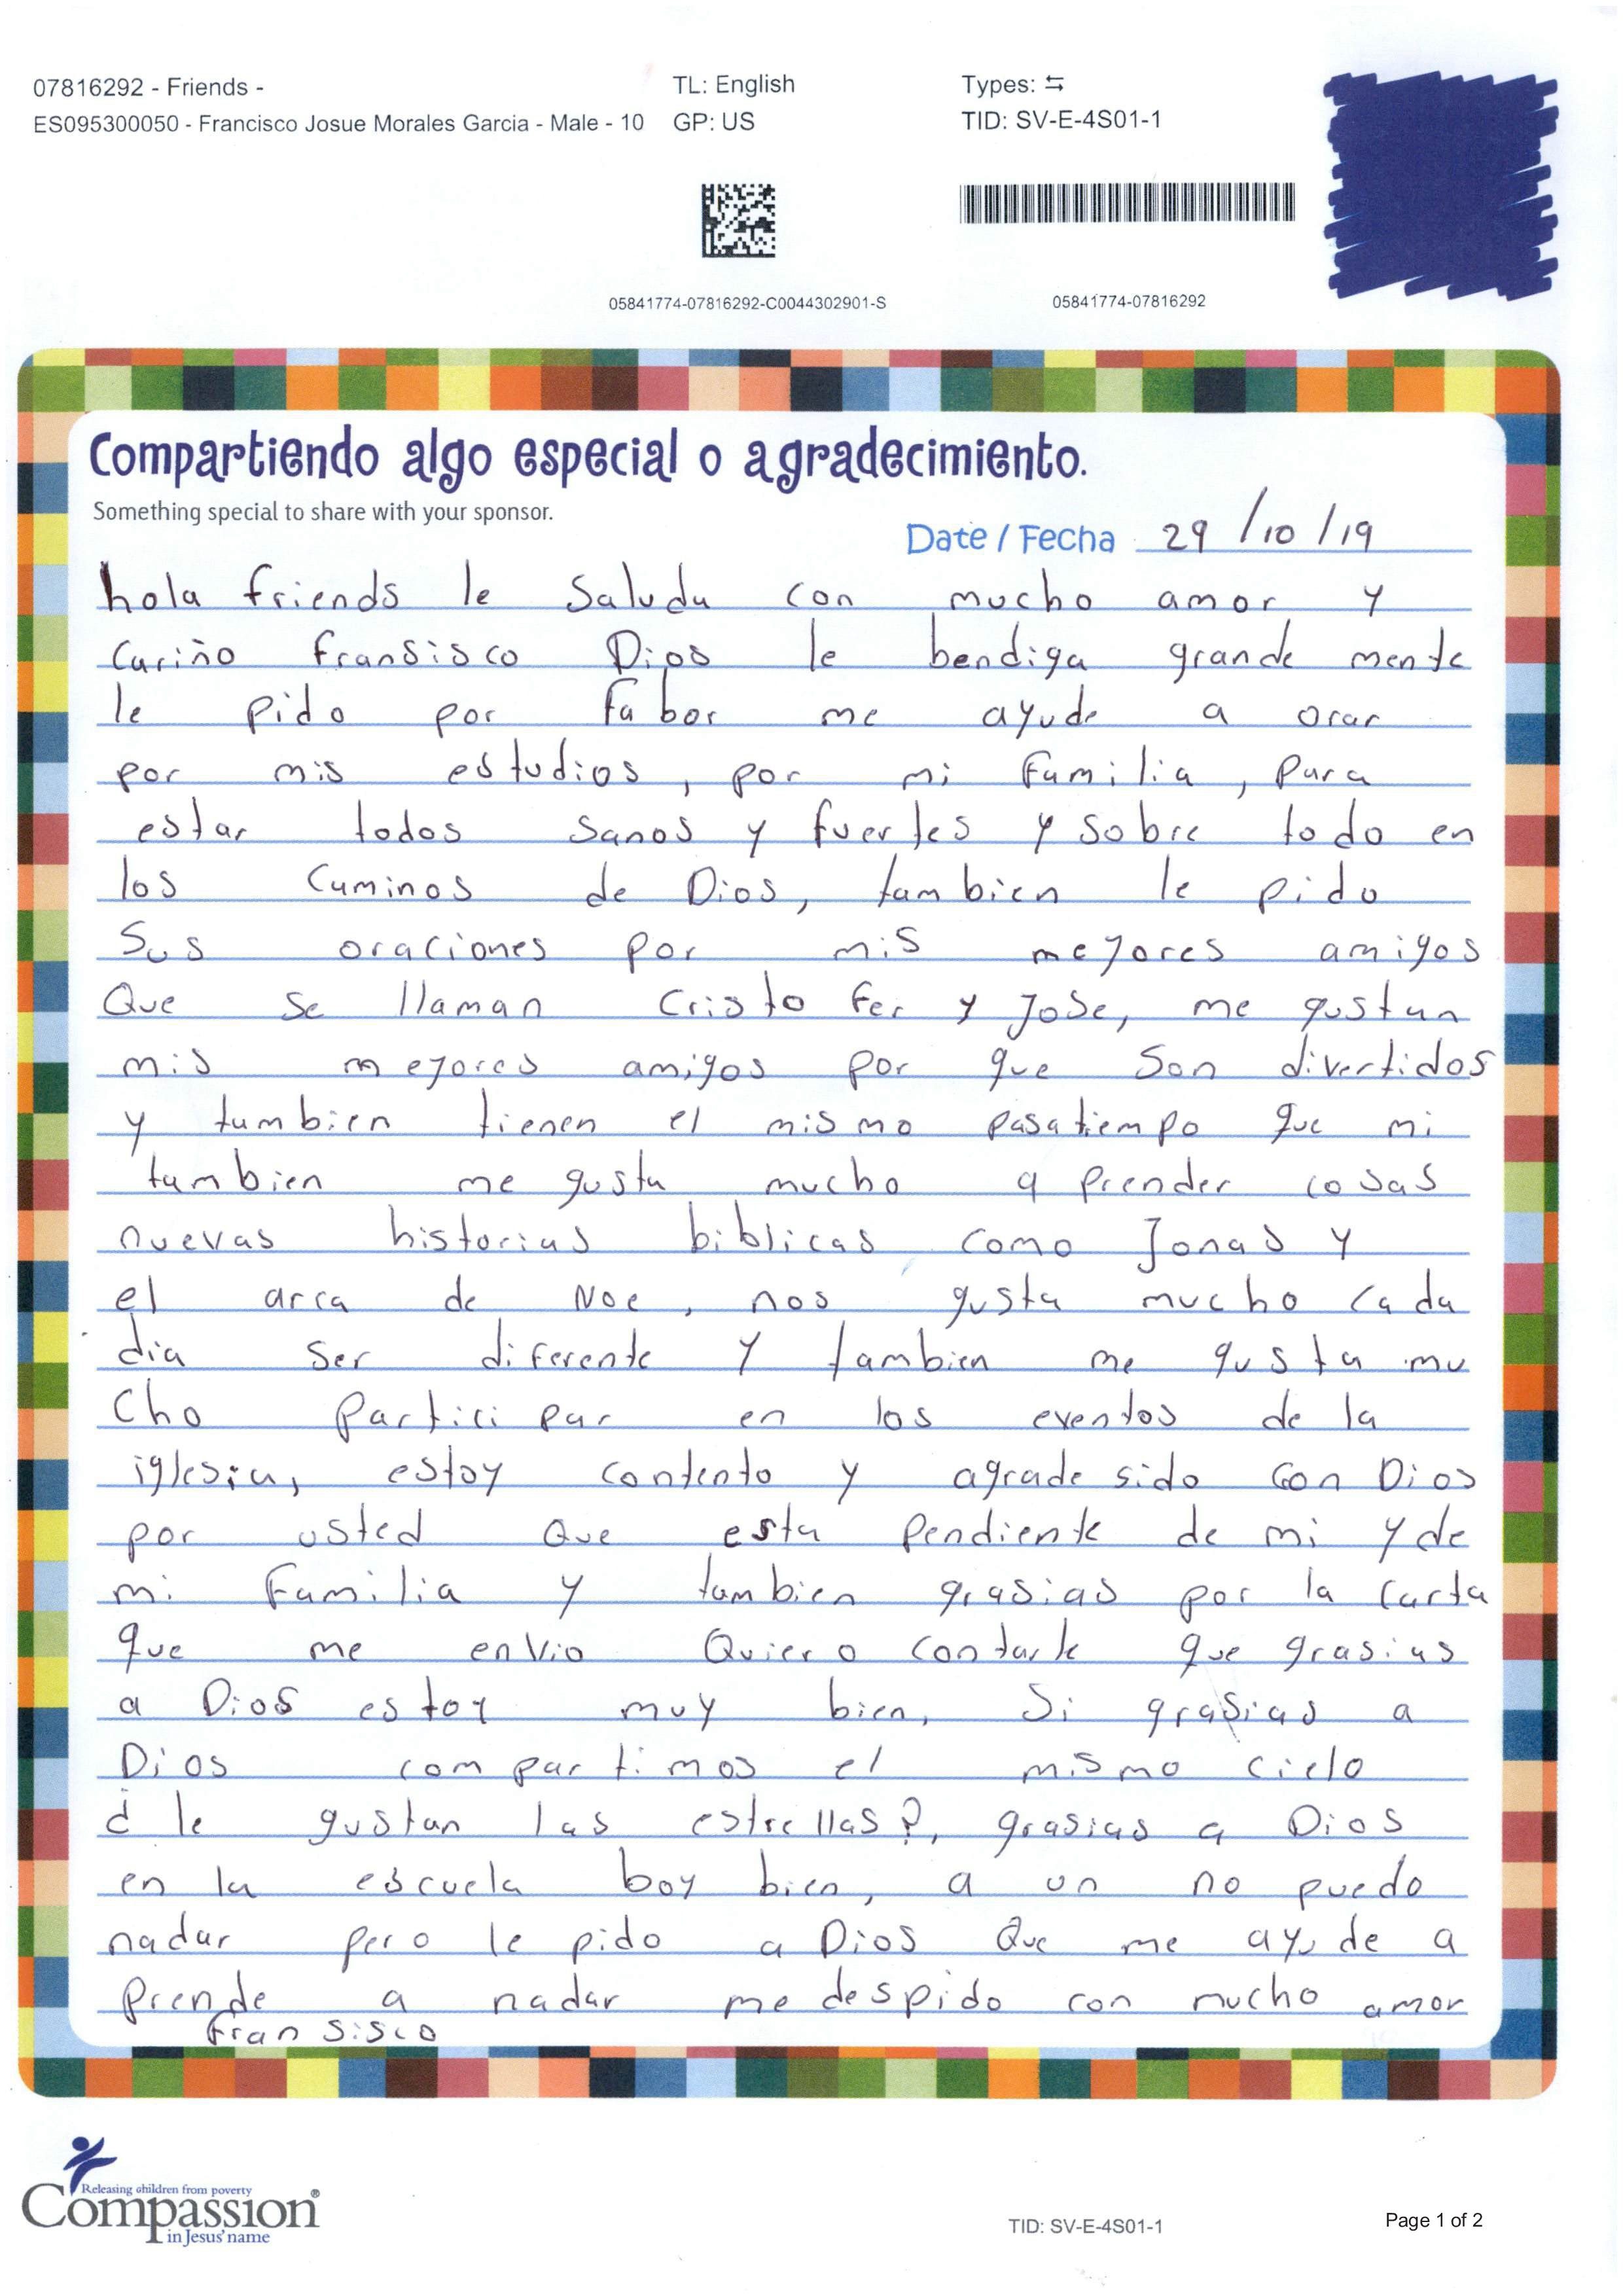 07816292 - Friends -
ES095300050 - Francisco Josue Morales Garcia - Male - 10
TL: English
GP: US
Types: ⇆
TID: SV-E-4S01-1
05841774-07816292-C0044302901-S
05841774-07816292
Compartiendo algo especial o agradecimiento.
Something special to share with your sponsor.
Date / Fecha 29/10/19
hola friends le Saluda con mucho amor y
Cariño fransisco Dios le bendiga grande mente
le pido por fabor me ayude a orar
por mis estudios, por mi familia, para
estar todos sanos y fuertes y sobre todo en
los Caminos de Dios, tambien le pido
Sus oraciones por mis meyores amigos
Que se llaman Cristo fer y Jose, me gustan
mis meyores amigos por que Son divertidos
y tambien tienen el mismo pasatiempo que mi
tambien me gusta mucho a prender cosas
nuevas historias biblicas como Jonas y
el arca de Noe, nos gusta mucho cada
dia ser diferente y tambien me gusta mu
Cho Partici par en los eventos de la
iglesia, estoy contento y agrade sido con Dios
por usted Que esta Pendiente de mi y de
mi Familia y tambien grasias por la Carta
que me envio Quiero contarle que grasias
a Dios estoy muy bien, Si grasias a
Dios compartimos el mismo cielo
¿le gustan las estrellas?, grasias a Dios
en la escuela boy bien, a un no puedo
nadar pero le pido a Dios Que me ayude a
Prende a nadar me despido con mucho amor
Fran sisco
Releasing children from poverty
Compassion®
in Jesus' name
TID: SV-E-4S01-1
Page 1 of 2